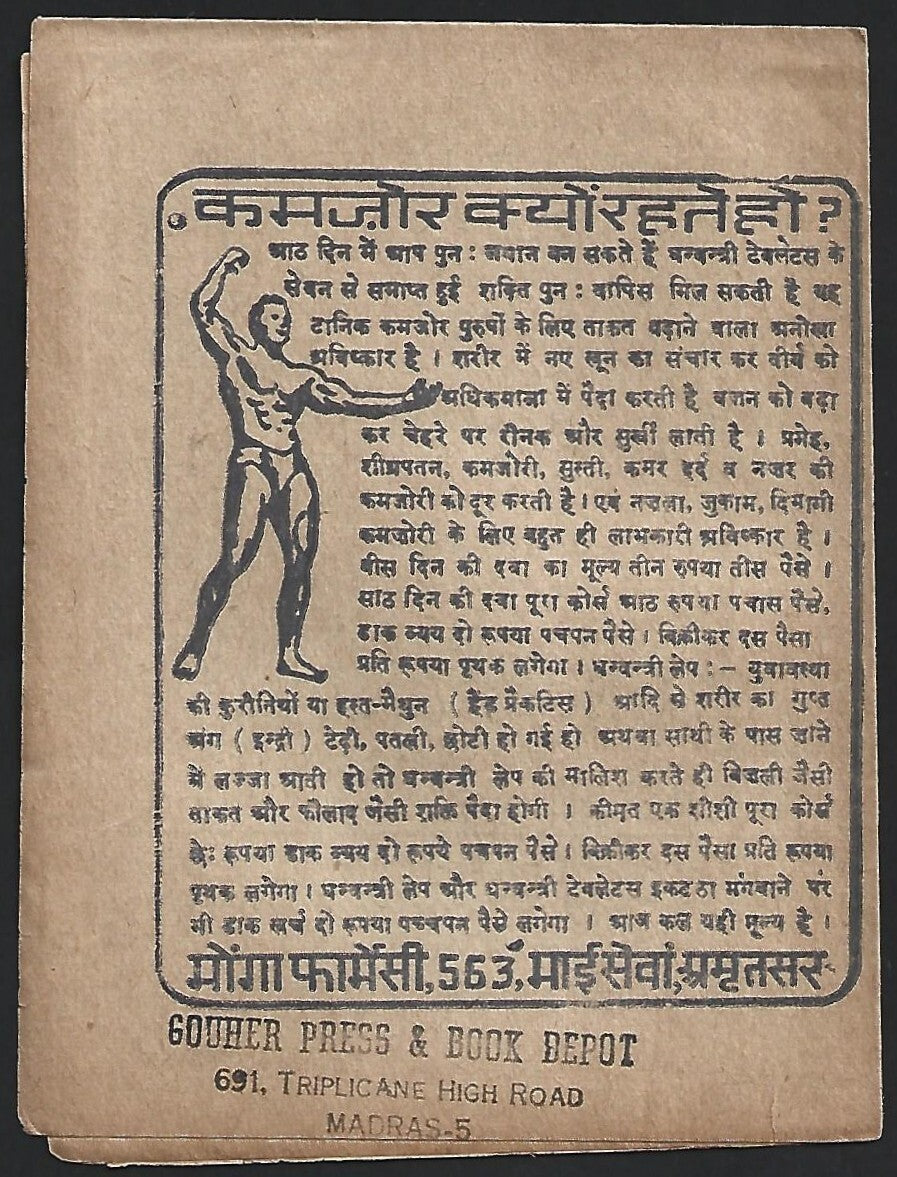 कमज़ोर क्यों रहते हो ?
आठ दिन में आप पुनः जवान बन सकते हैं धन्वन्त्री टेबलेटस के
सेवन से समाप्त हुई शक्ति पुनः वापिस मिल सकती है यह
टानिक कमजोर पुरुषों के लिए ताकत बढ़ाने वाला अनोखा
अविष्कार है । शरीर में नए खून का संचार कर वीर्य को
अधिकमात्रा में पैदा करती है वजन को बढ़ा
कर चेहरे पर रौनक और सुर्खी लाती है । प्रमेह,
शीघ्रपतन, कमजोरी, सुस्ती, कमर दर्द व नजर की
कमजोरी को दूर करती है । एवं नजला, जुकाम, दिमागी
कमजोरी के लिए बहुत ही लाभकारी अविष्कार है ।
बीस दिन की दवा का मूल्य तीन रुपया तीस पैसे ।
साठ दिन की दवा पूरा कोर्स आठ रुपया पचास पैसे,
डाक व्यय दो रूपया पचपन पैसे । बिक्रीकर दस पैसा
प्रति रूपया पृथक लगेगा । धन्वन्त्री लेप :- युवावस्था
की कुरीनियों या हस्त-मैथुन ( हैंड प्रैकटिस ) आदि से शरीर का गुप्त
अंग ( इन्द्री ) टेढ़ी, पतली, छोटी हो गई हो अथवा साथी के पास जाने
में लज्जा आती हो तो धन्वन्त्री लेप की मालिश करते ही बिजली जैसी
ताकत और फौलाद जैसी शक्ति पैदा होगी । कीमत एक शीशी पूरा कोर्स
छैः रूपया डाक व्यय दो रूपये पचपन पैसे । बिक्रीकर दस पैसा प्रति रूपया
पृथक लगेगा । धन्वन्त्री लेप और धन्वन्त्री टेबलेटस इकटठा मंगवाने पर
भी डाक खर्च दो रूपया पच्चपन पैसे लगेगा । आज कल यही मूल्य है ।
मोंगा फार्मेसी, 563, माई सेवां, अमृतसर
GOUHER PRESS & BOOK DEPOT
691, TRIPLICANE HIGH ROAD
MADRAS-5